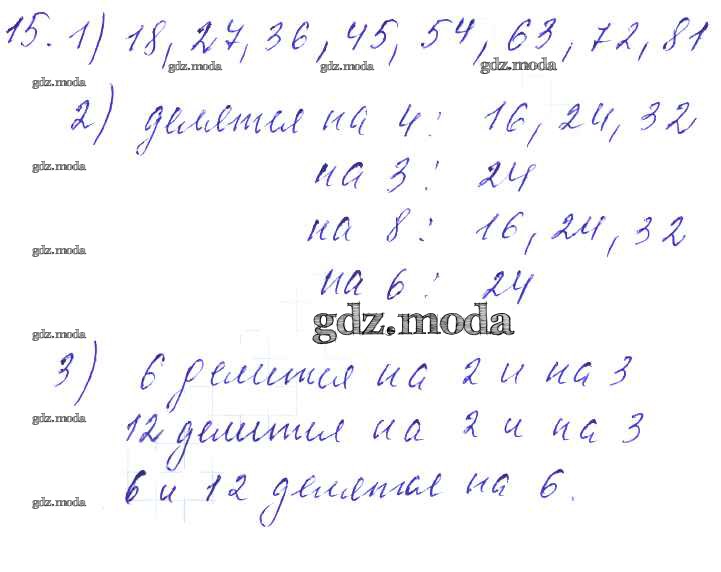 15. 1) 18, 27, 36, 45, 54, 63, 72, 81
gdz.moda gdz.moda gdz.moda
gdz.moda
2) делятся на 4: 16, 24, 32
gdz.moda
на 3: 24
на 8: 16, 24, 32
gdz.moda
на 6: 24
gdz.moda
gdz.moda
3) 6 делится на 2 и на 3
gdz.moda
12 делится на 2 и на 3
6 и 12 делятся на 6.
gdz.moda